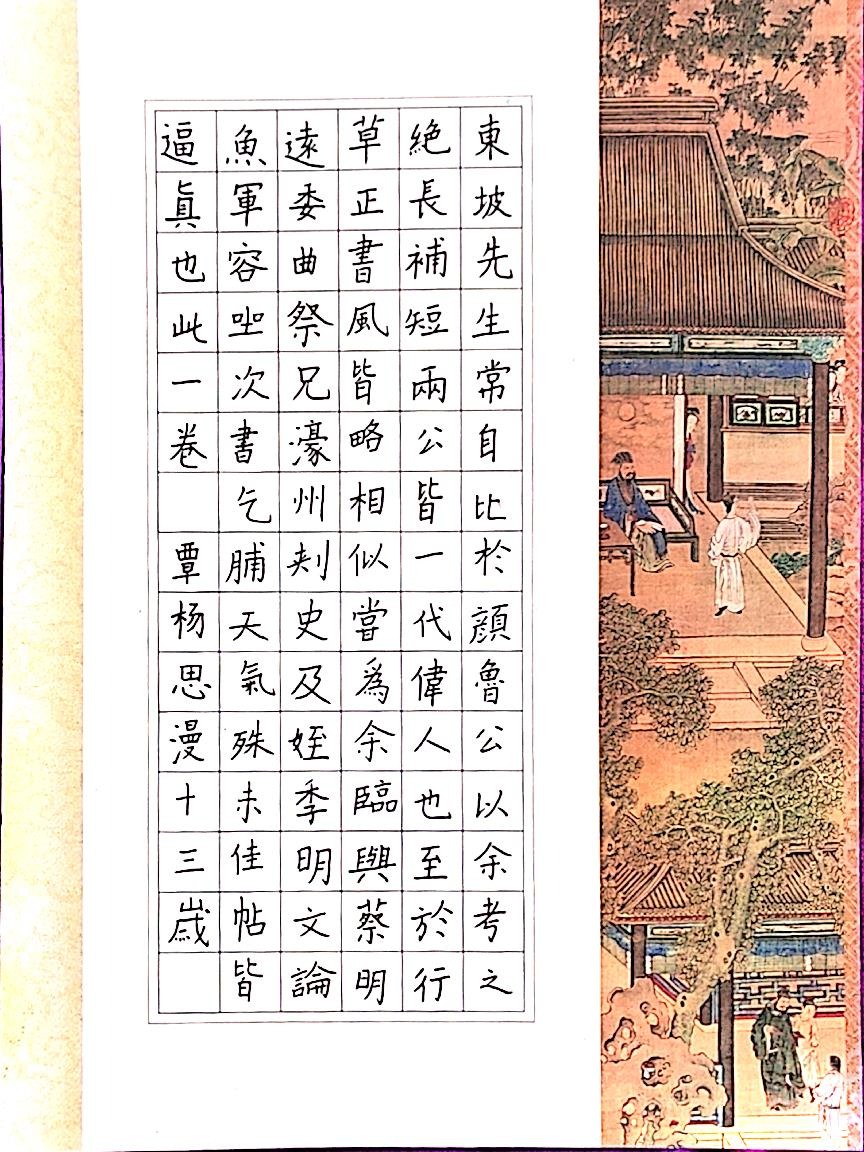 東坡先生常自比於顔魯公以余考之
絶長補短兩公皆一代偉人也至於行
草正書風皆略相似嘗爲余臨與蔡明
遠委曲祭兄濠州刾史及姪季明文論
魚軍容坐次書乞脯天氣殊未佳帖皆
逼眞也此一卷 覃杨思漫十三歲